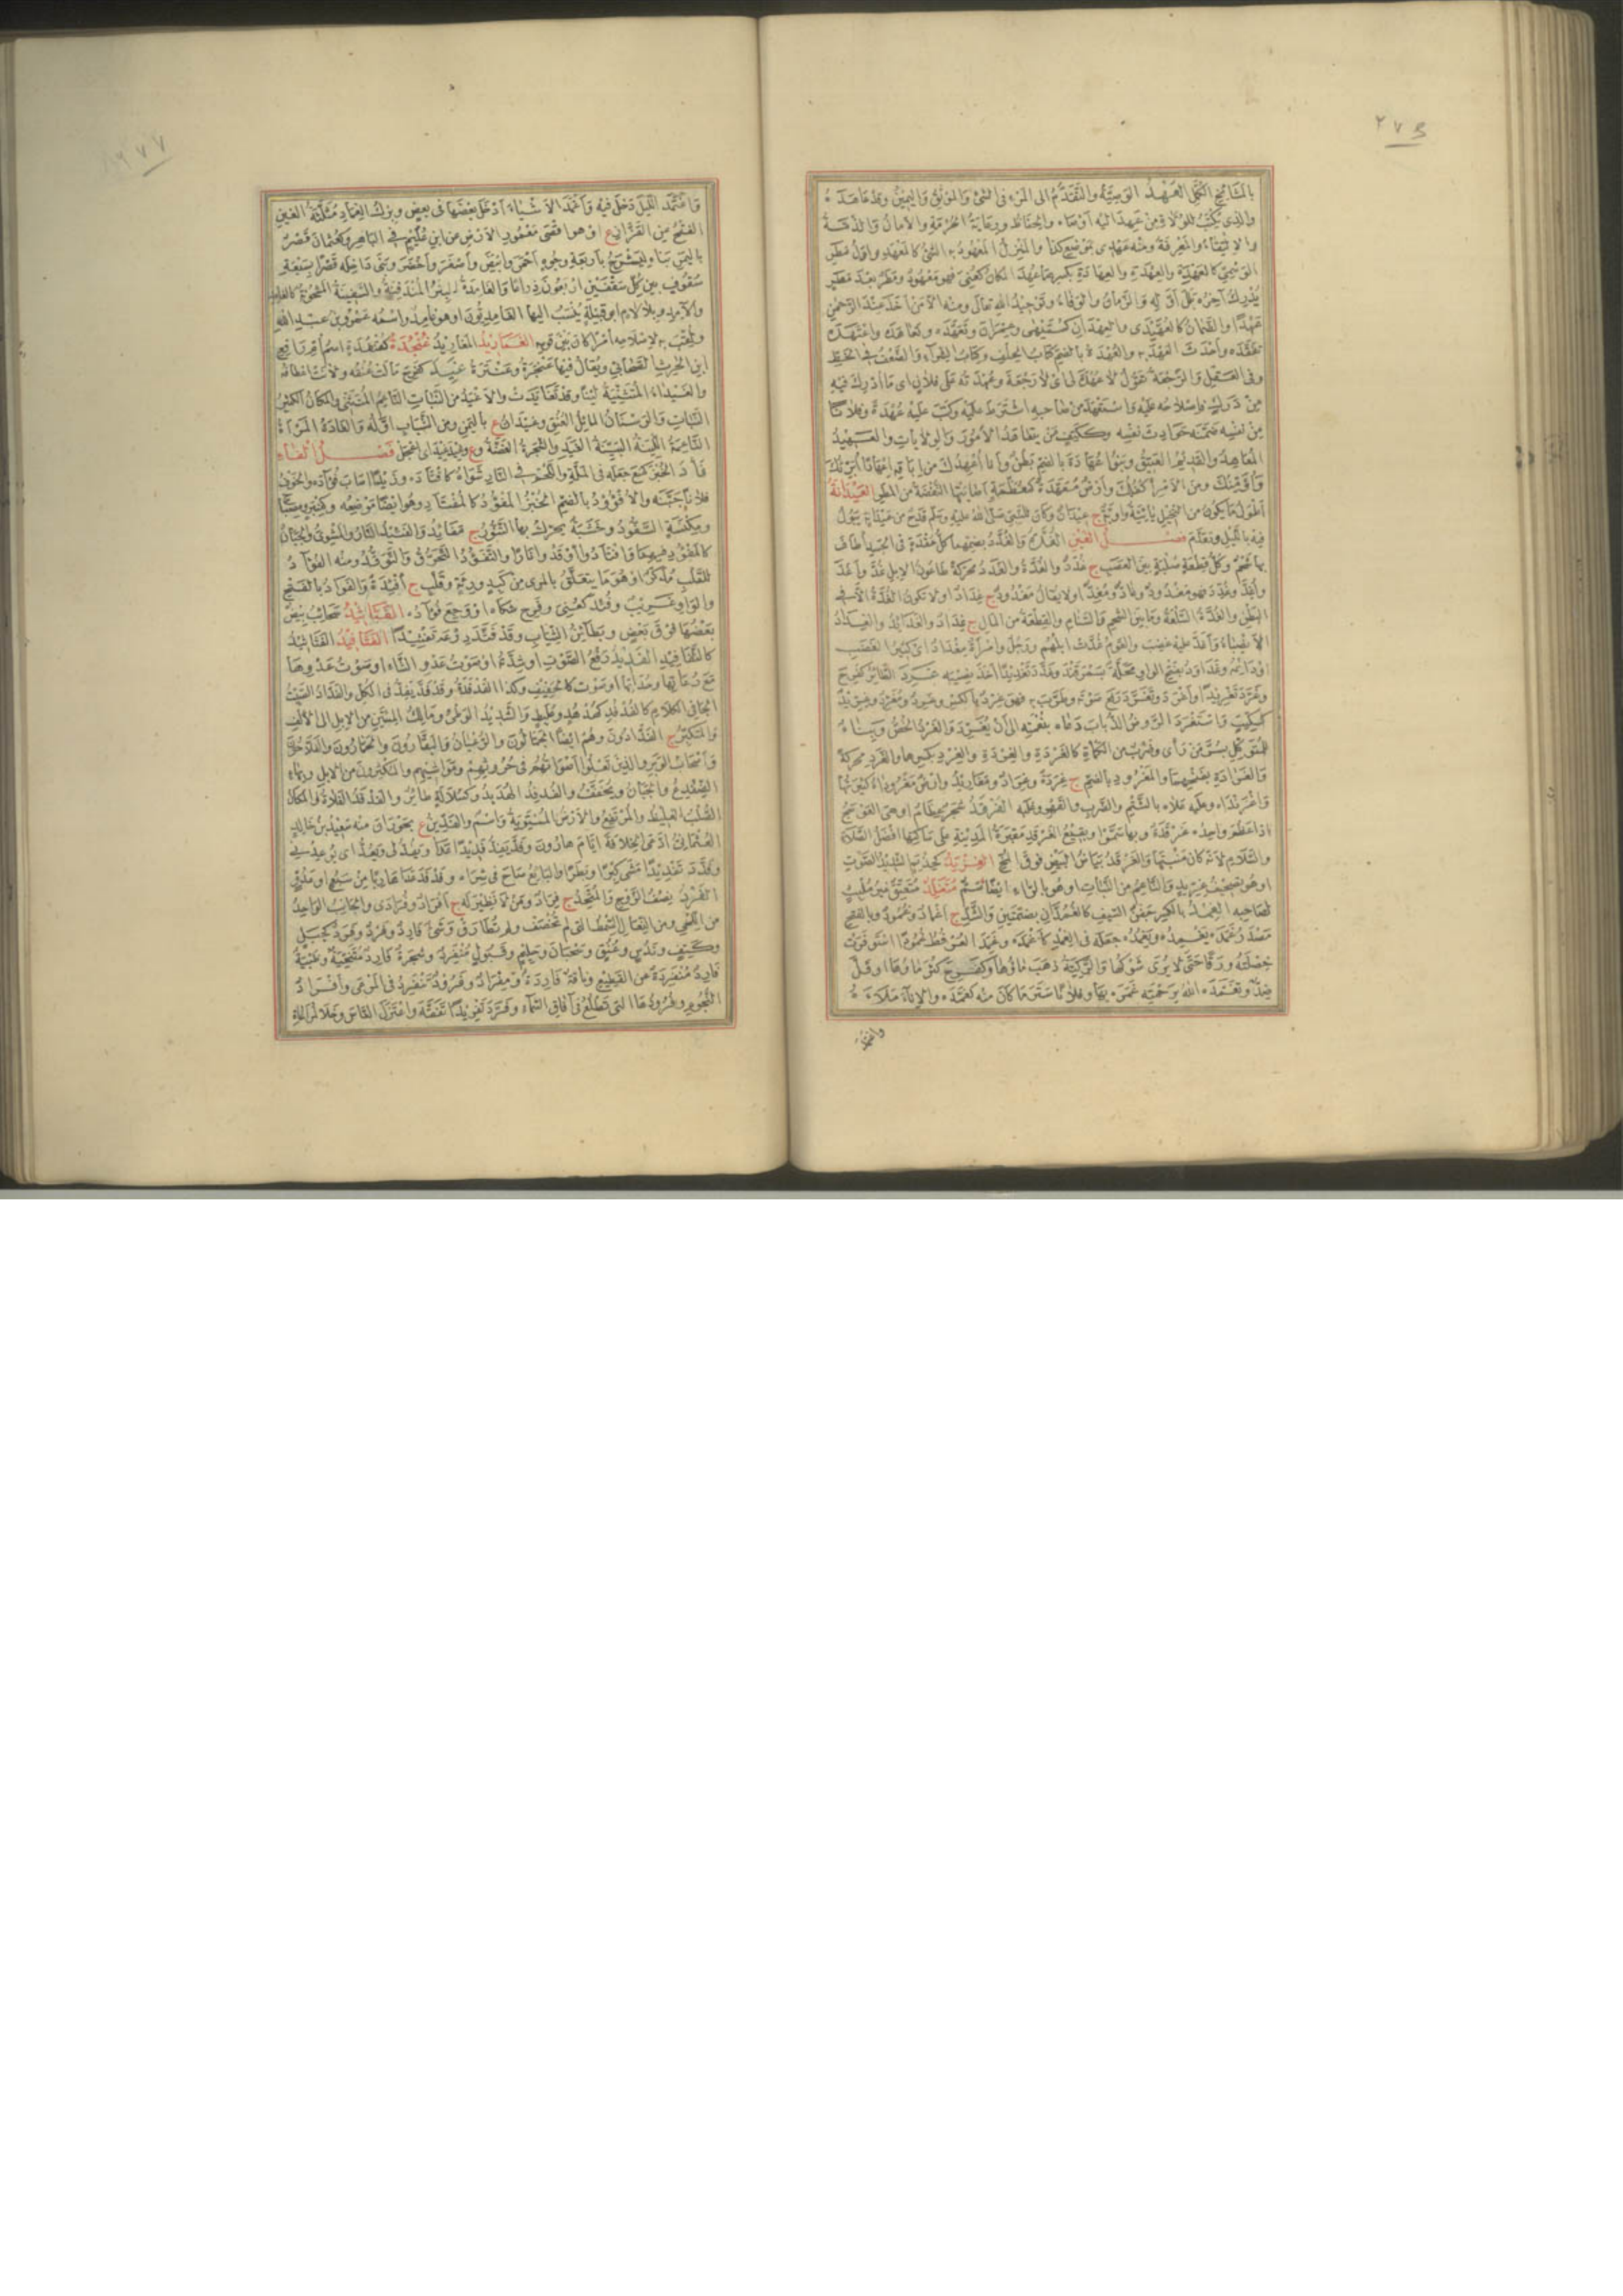 ٢٧٦
بالمشايخ الكمل العهد الوصية والتقدم الى المرء فى الشئ والموثق واليمين وقد عاهده
والذى يكتب للولاة من عهد اليه اوصاه والحفاظ ورعاية الحرمة والامان والذمة
والالتقاء والمعرفة ومنه عهدى بموضع كذا والمنزل المعهود به الشئ كالمعهد واول مطر
الوسمى كالعهدة والعهدة والعهادة بكسرهما عهد المكان كعنى فهو معهود ومطر بعد مطر
يدرك آخره بلل اوله والزمان والوفاء وتوحيد الله تعالى ومنه الا من اتخذ عند الرحمن
عهدا والضمان كالعهيدى والعهدان كسميهى وعمران وتعهده وتعاهده واعتهده
تفقده واحدث العهد به والعهدة بالضم كتاب الحلف وكتاب الشراء والضعف فى الخط
وفى العقل والرجعة تقول لا عهدة لى اى لا رجعة وعهدته على فلان اى ما ادرك فيه
من درك فاصلاحه عليه واستعهد من صاحبه اشترط عليه وكتب عليه عهدة وفلانا
من نفسه ضمنه حوادث نفسه وككتف من يتعاهد الامور والولايات والعهيد
المعاهد والقديم العتيق وبنو عهادة بالضم بطن وانا اعهدك من اباقه اعهادا ابرئك
وأؤمنك ومن الامر اكفلك وارض معهدة كمعظمة اصابتها النفضة من المطر العيدانة
اطول ما يكون من النخل يائية واوية ج عيدان وكان للنبى صلى الله عليه وسلم قدح من عيدانة يبول
فيه بالليل وتقدم فصل الغين الغدة والغدد بضمهما كل عقدة فى الجسد اطاف
بها شحم وكل قطعة صلبة بين العصب ج غدد والغدة والغدد محركة طاعون الابل غد واغد
واغد وغدد فهو مغدود وغاد ومغد او لا يقال مغدود ج غداد او لا تكون الغدة الا فى
البطن والغدة السلعة وما بين الشحم والسنام والقطعة من المال ج غداد والغدائد والغداد
الانصباء واغد عليه غضب والقوم غدت ابلهم ورجل وامراة مغداد اى كثير الغضب
او دائمه وغداود بفتح الواو محلة بسمرقند وغدد تغديدا اخذ نصيبه غرد الطائر كفرح
وغرد تغريدا واغرد وتغرد رفع صوته وطرب به فهو غرد بالكسر وغرد ومغرد وغريد
كسكيت واستغرد الروض الذباب دعاه بنغمته الى ان يغرد والغرد الخص وبناء
للمتوكل بسر من رأى وضرب من الكمأة كالغردة والغردة والغرد بكسرهما والغرد محركة
والغرادة بفتحهما والمغرود بالضم ج غردة وغراد ومغاريد وارض مغروداء كثيرتها
واغرنداه وعليه علاه بالشتم والضرب والقهر وغلبه الغرقد شجر عظام او هى العوسج
اذا عظم واحده غرقدة وبها سموا وبقيع الغرقد مقبرة المدينة على ساكنها افضل الصلاة
والسلام لانه كان منبتها والغرقد بياض البيض فوق المح الغزيد كحذيم الشديد الصوت
او هو تصحيف غريد والناعم من النبات او هو بالراء ايضا سم متغلد متعيق غير ملبث
لصاحبه الغمد بالكسر جفن السيف كالغمدان بضمتين والشد ج اغماد وغمود وبالفتح
مصدر غمده يغمده ويغمده جعله فى الغمد كاغمده وغمد العرفط غمودا استوفرت
خصلته ورقا حتى لا يرى شوكها والركية ذهب ماؤها وكفرح كثر ماؤها او قل
ضد وتغمده الله برحمته غمره بها وفلانا ستر ما كان منه كغمده والاناء ملأه
واغتمد
٢٧٧
واغتمد الليل دخل فيه واغمد الاشياء ادخل بعضها فى بعض وبرك الغماد مثلثة الغين
الفتح عن القزاز ع او هو اقصى معمور الارض عن ابن عليم فى الباهر وكعثمان قصر
باليمن بناه ليشرح باربعة وجوه احمر وابيض واصفر واخضر وبنى داخله قصرا بسبعة
سقوف بين كل سقفين اربعون ذراعا والغامدة البئر المندفنة والسفينة المشحونة كالغامد
والآمد وبلا لام ابو قبيلة ينسب اليها الغامديون او هو غامد واسمه عمرو بن عبد الله
ولقب به لاصلاحه امرا كان بين قومه الغماريد المغاريد غنجدة كقنفذة اسم ام رافع
ابن الحرث الصحابى ويقال فيها عنجرة وعنترة غيد كفرح مالت عنقه ولانت اعطافه
والغيداء المتثنية لينا وقد تغايدت والاغيد من النبات الناعم المتثنى والمكان الكثير
النبات والوسنان المائل العنق وغيدان ع باليمن ومن الشباب اوله والغادة المرأة
الناعمة اللينة البينة الغيد والشجرة الغضة و ع وغيد غيد اى اعجل فصل الفاء
فأد الخبز كمنع جعله فى الملة واللحم فى النار شواه كافتأده وزيدا اصاب فؤاده والخوف
فلانا جبنه والافؤود بالضم الخبز المفؤود كالمفتأد وهو ايضا موضعه وكمنبر ومصباح
ومكنسة السفود وخشبة يحرك بها التنور ج مفائد والفئيد النار والمشوى والجبان
كالمفؤود فيهما وافتأدوا اوقدوا نارا والتفؤد التحرق والتوقد ومنه الفؤاد
للقلب مذكر او هو ما يتعلق بالمرئ من كبد ورئة وقلب ج افئدة والفواد بالفتح
والواو غريب وفئد كعنى وفرح شكاه او وجع فؤاده الفثاثيد سحائب بيض
بعضها فوق بعض وبطائن الثياب وقد فثد درعه تفثيدا الفثافيد الفثاثيد
كالثفافيد الفديد رفع الصوت او شدته او صوت عدو الشاء او صوت عدوها
مع رعاتها وحداتها او صوت كالحفيف وكذا الفدفدة وقد فد يفد فى الكل والفداد الشيت
الجافى الكلام كالفدفد كهدهد وعلبط والشديد الوطء ومالك المئين من الابل الى الالف
والمتكبر ج الفدادون وهم ايضا الجمالون والرعيان والبقارون والحمارون والفلاحون
واصحاب الوبر والذين تعلو اصواتهم فى حروثهم ومواشيهم والمكثرون من الابل وبهاء
الضفدع والجبان ويخفف والفدفد الهدبد وكسلالة طائر والفدفد الفلاة والمكان
الصلب الغليظ والمرتفع والارض المستوية واسم والفدين ع بحوران منه سعيد بن خالد
العثمانى ادعى الخلافة ايام هارون وفد يفد فديدا عدا ويفد لى ويعد اى يوعدنى
وفدد تفديدا مشى كبرا وبطرا والبائع صاح فى شراءه وفدفد عدا هاربا من سبع او عدو
الفرد نصف الزوج والمتحد ج فراد ومن لا نظير له ج افراد وفرادى والجانب الواحد
من اللحى ومن النعال السمط التى لم تخصف ولم تطارق وشئ فارد وفرد وفرد كجبل
وككتف وندس وعنق وسحبان وحليم وقبول منفرد وشجرة فارد متنحية وظبية
فارد منفردة عن القطيع وناقة فاردة ومفراد وفرود تنفرد فى المرعى وافراد
النجوم وفرودها التى تطلع فى آفاق السماء وفرد تفريدا تفقه واعتزل الناس وخلا لمراعاة